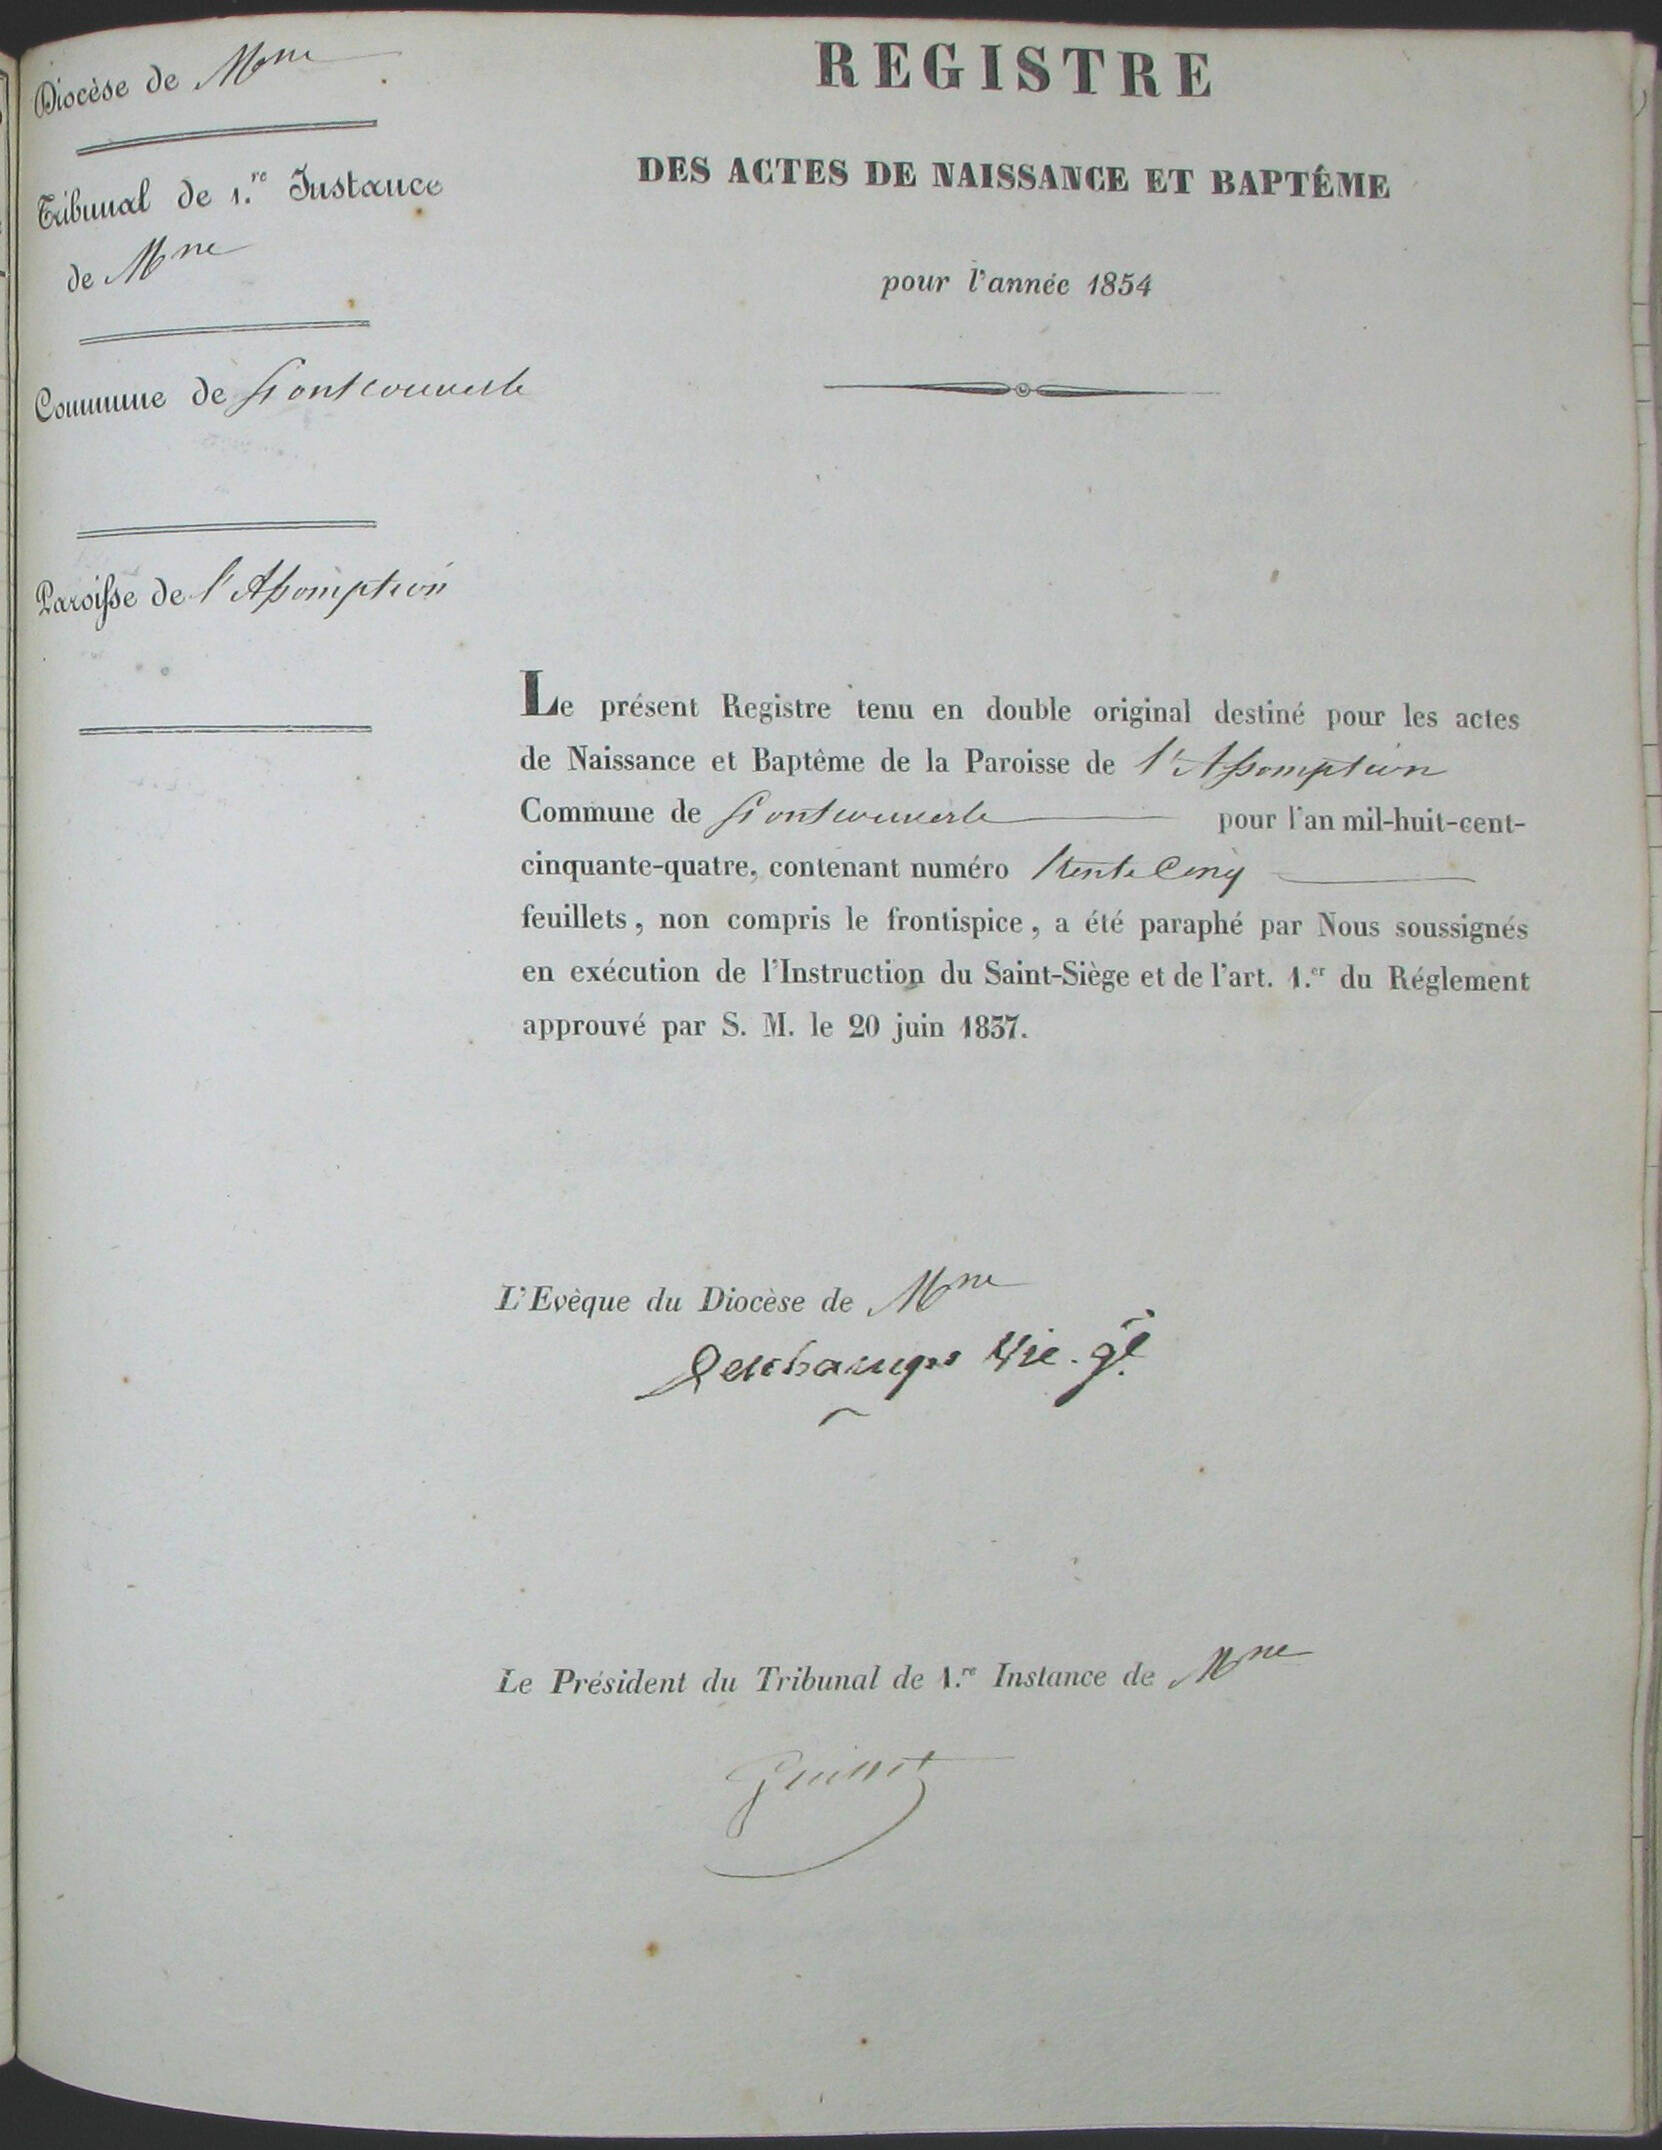 Diocèse de Mne
Tribunal de 1.re Instance
de Mne
Commune de Fontcouverte
Paroisse de l'Assomption
REGISTRE
DES ACTES DE NAISSANCE ET BAPTÊME
pour l'année 1854
Le présent Registre tenu en double original destiné pour les actes
de Naissance et Baptême de la Paroisse de l'Assomption
Commune de Fontcouverte pour l'an mil-huit-cent-
cinquante-quatre, contenant numéro trente cinq
feuillets, non compris le frontispice, a été paraphé par Nous soussignés
en exécution de l'Instruction du Saint-Siège et de l'art. 1.er du Réglement
approuvé par S. M. le 20 juin 1837.
L'Evèque du Diocèse de Mne
Deschamps Vic. gl
Le Président du Tribunal de 1.re Instance de Mne